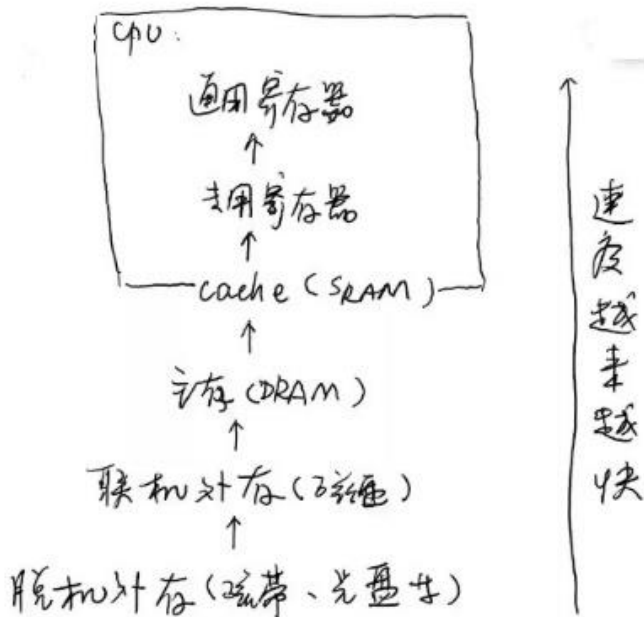 cpu:
通用寄存器
专用寄存器
cache (SRAM)
主存 (DRAM)
联机外存 (磁盘)
脱机外存 (磁带、光盘等)
速度越来越快